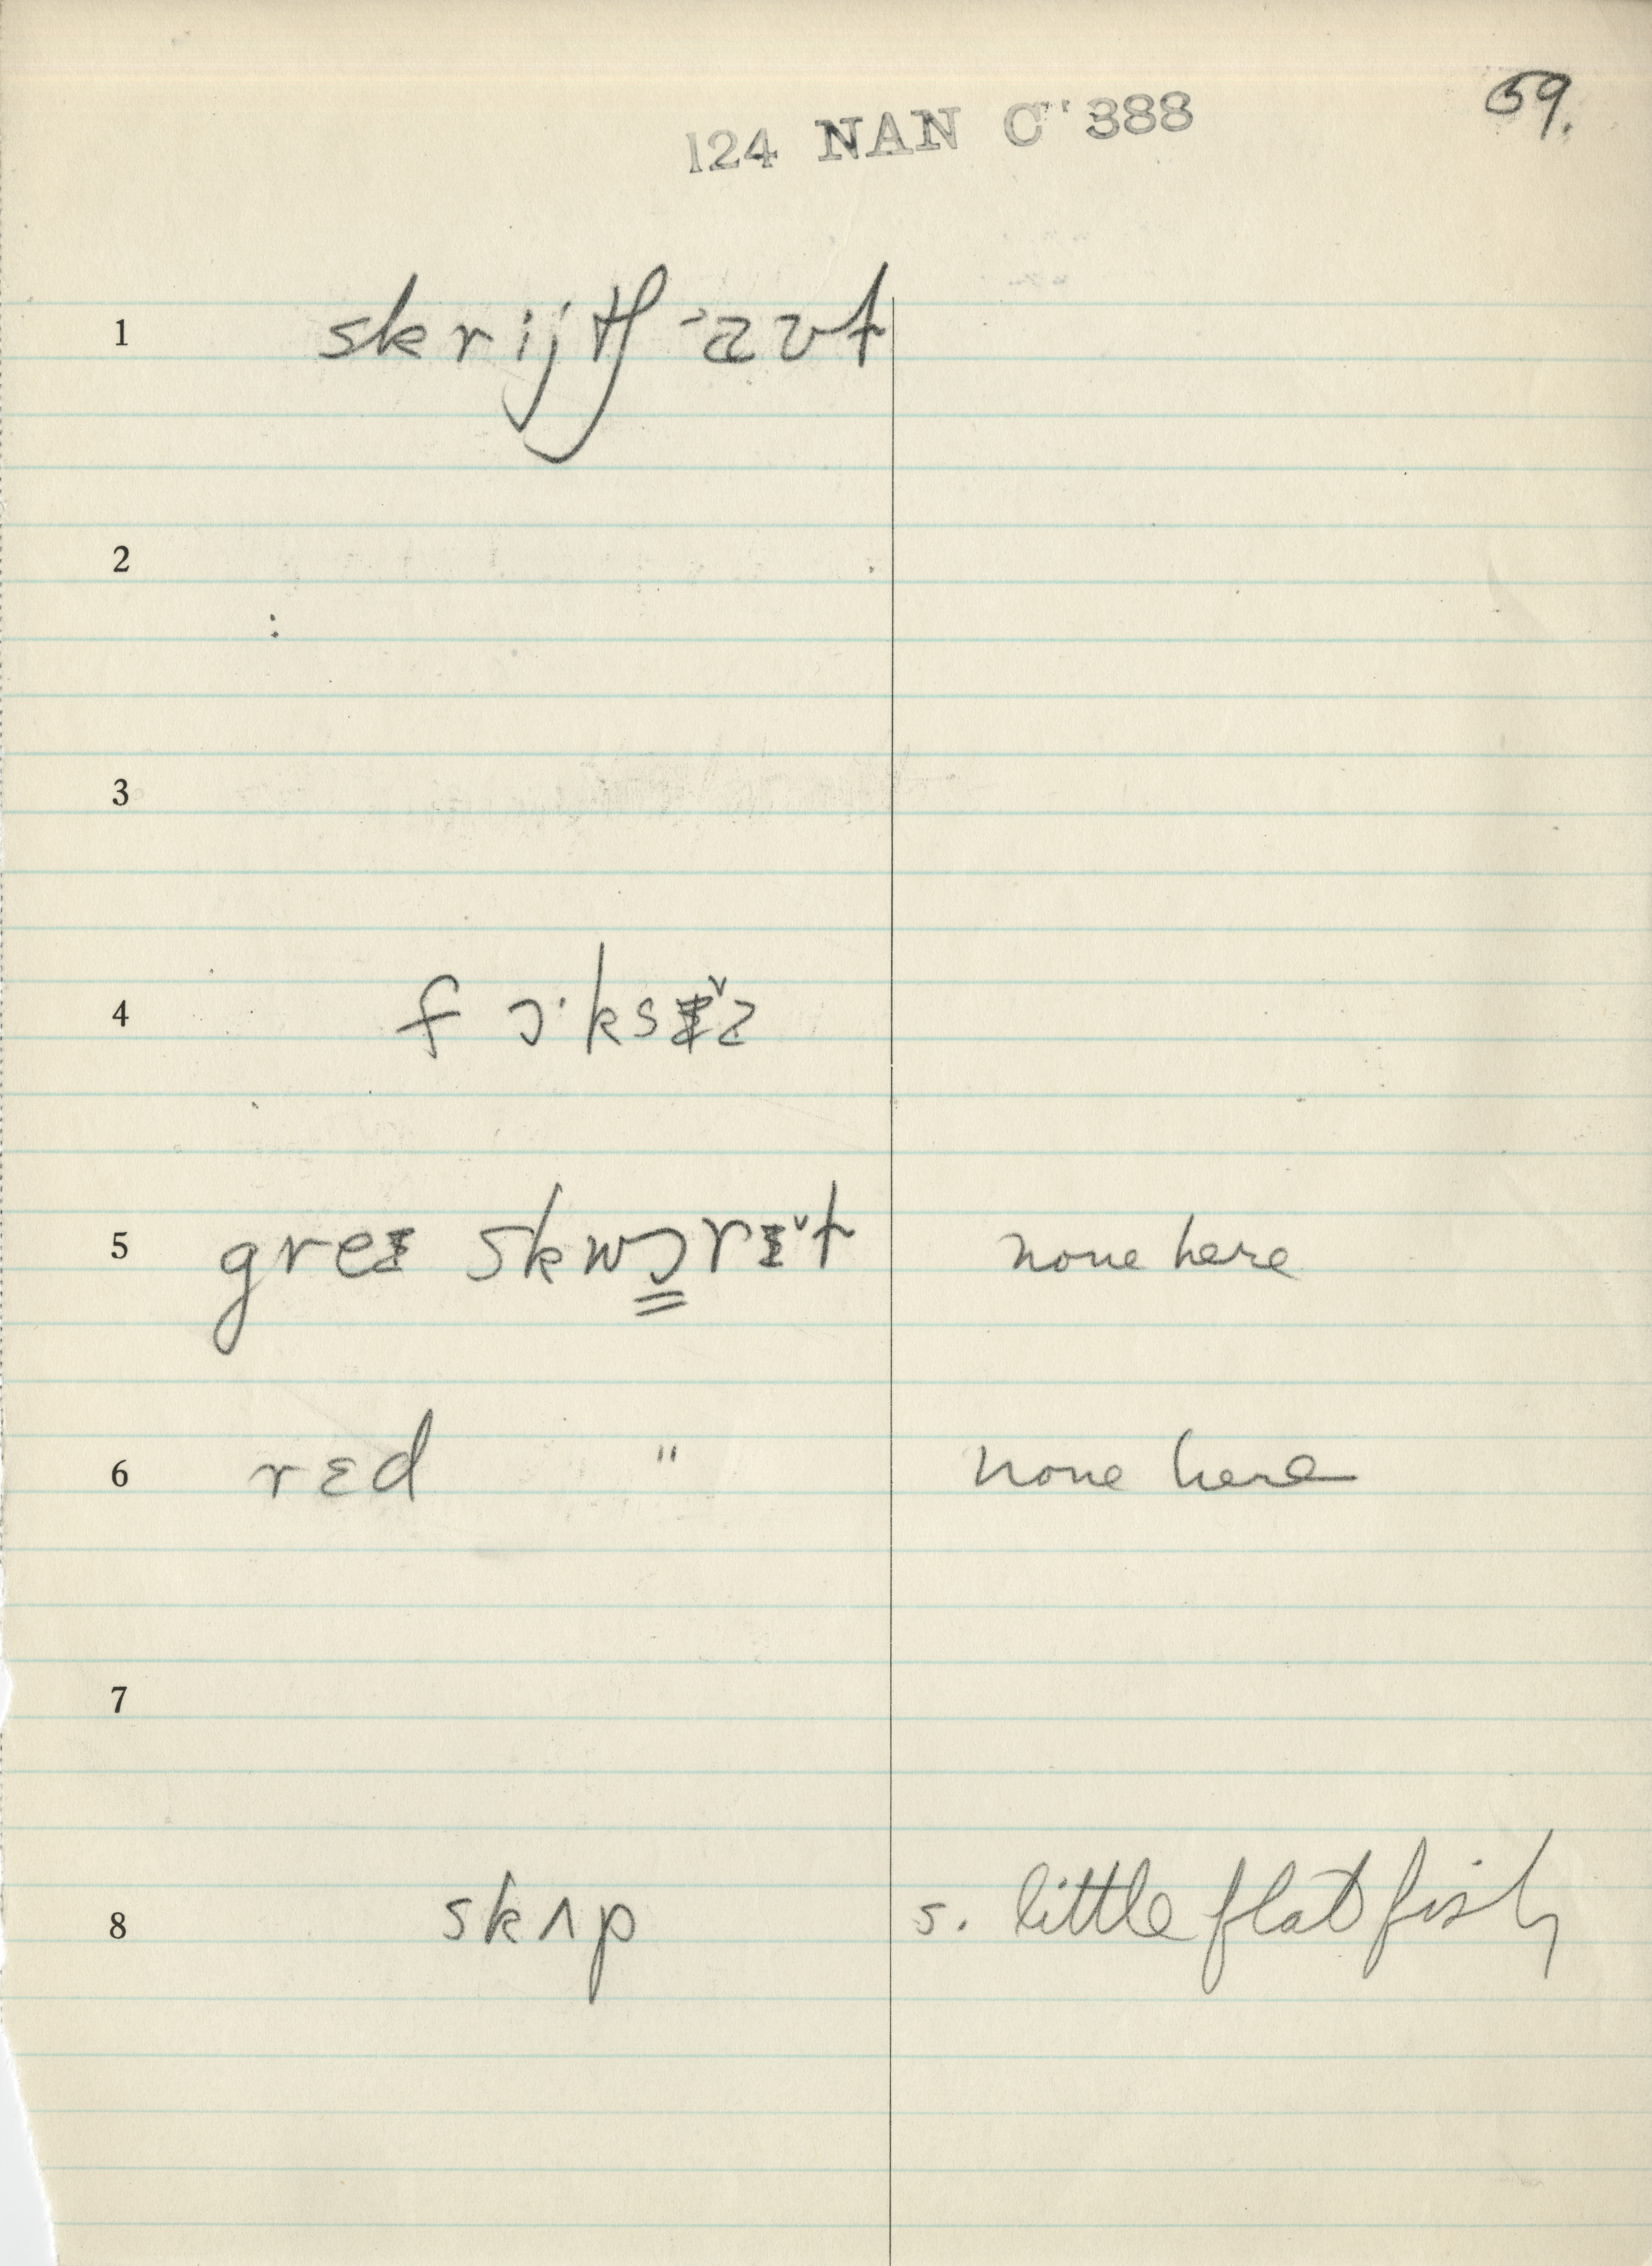 59.
124 NAN C 388
1 skrijtʃ -aʊt
2
3
4 f ɔ·ksɪ̌z
5 greɪ skwɔrɪ̌t none here
6 rɛd " none here
7
8 skʌp s. little flat fish